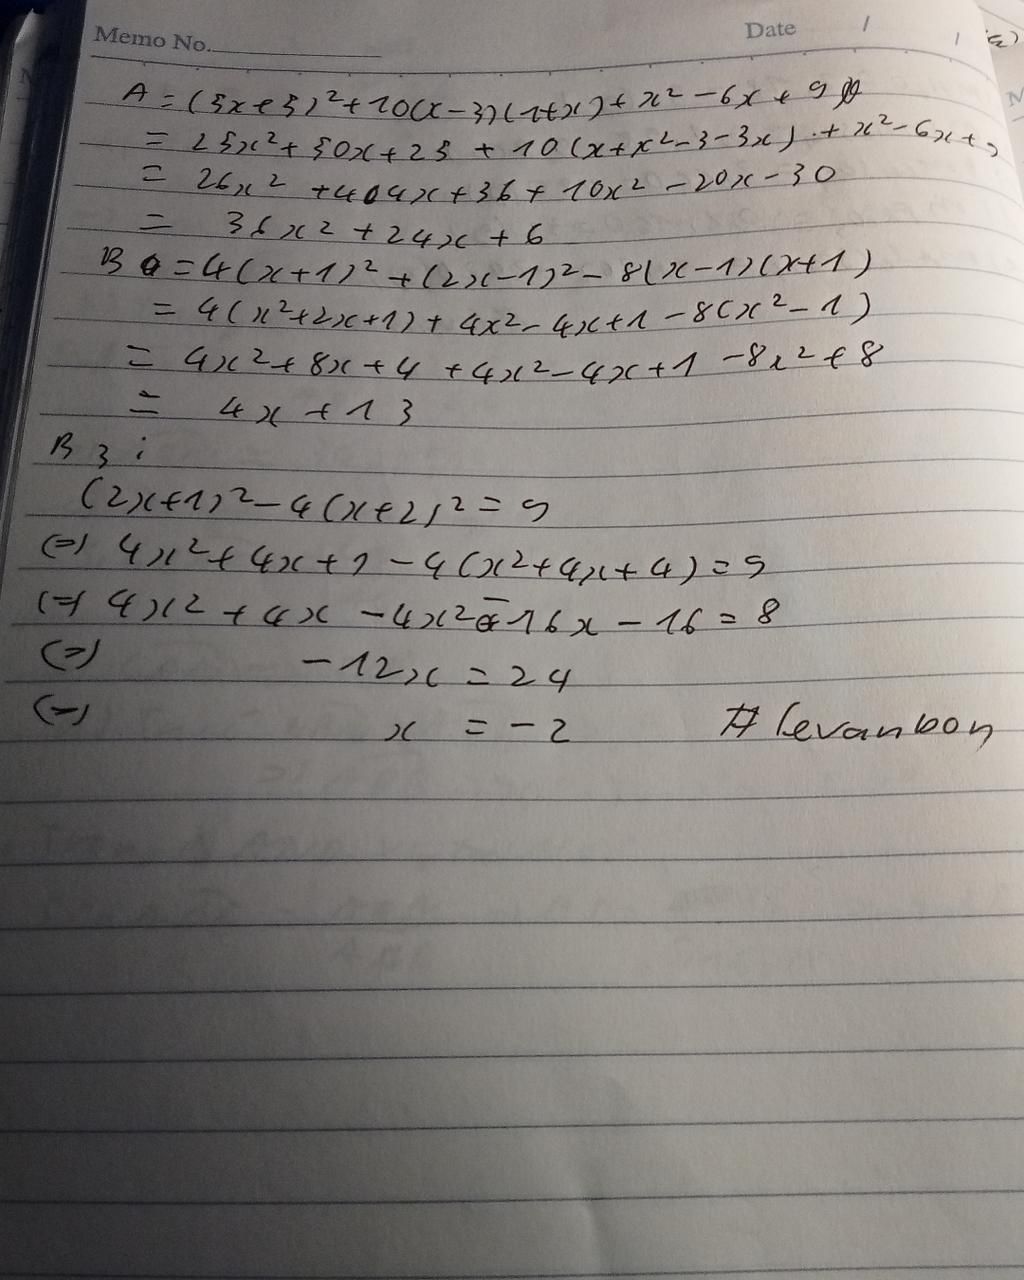 Memo No.
Date / /
A = (5x+5)²+10(x-3)(1+x)+x²-6x+9
= 25x²+50x+25 + 10(x+x²-3-3x) + x²-6x+9
= 26x² +44x+34+10x²-20x-30
= 36x²+24x+6
B =4(x+1)²+(2x-1)²-8(x-1)(x+1)
= 4(x²+2x+1)+4x²-4x+1-8(x²-1)
= 4x²+8x+4+4x²-4x+1-8x²+8
= 4x+13
B3:
(2x+1)²-4(x+2)²=9
(=) 4x²+4x+1-4(x²+4x+4)=9
(=) 4x²+4x-4x²-16x-16=8
(=) -12x=24
(=) x=-2 #levanbon